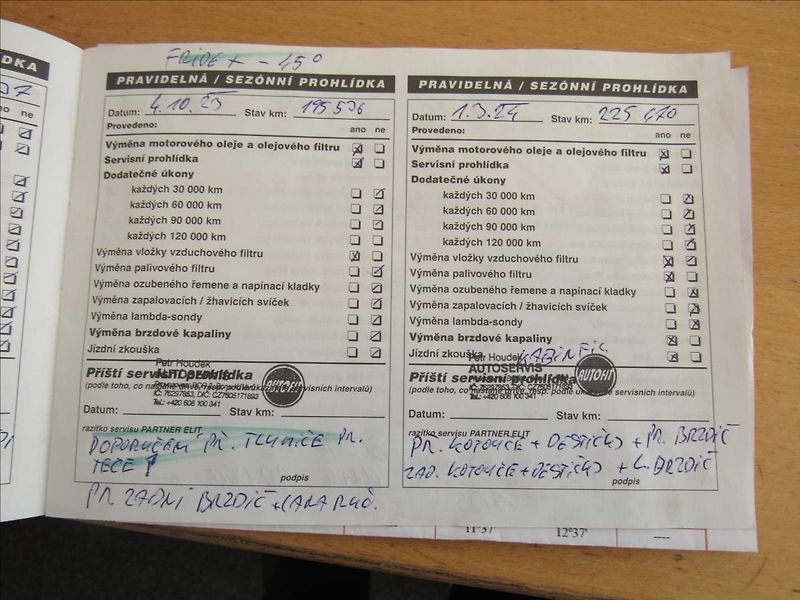 DKA
FRIDEX - 45°
PRAVIDELNÁ / SEZÓNNÍ PROHLÍDKA
Datum: 4.10.23 Stav km: 195 536
Provedeno: ano ne
Výměna motorového oleje a olejového filtru
Servisní prohlídka
Dodatečné úkony
každých 30 000 km
každých 60 000 km
každých 90 000 km
každých 120 000 km
Výměna vložky vzduchového filtru
Výměna palivového filtru
Výměna ozubeného řemene a napínací kladky
Výměna zapalovacích / žhavicích svíček
Výměna lambda-sondy
Výměna brzdové kapaliny
Jízdní zkouška
Petr Houdek
AUTOSERVIS
IČ: 76297853, DIČ: CZ7605171893
Tel.: +420 606 100 341
AUTOHI
Příští servisní prohlídka
(podle toho, co nastane dříve, resp. podle ukazatele servisních intervalů)
Datum: Stav km:
razítko servisu PARTNER ELIT
DOPORUČENÍ PŘ. TLUMIČE PR.
TEČE !
podpis
PR ZADNÍ BRZDIČ + LANA RUČ.
PRAVIDELNÁ / SEZÓNNÍ PROHLÍDKA
Datum: 1.3.24 Stav km: 225 470
Provedeno: ano ne
Výměna motorového oleje a olejového filtru
Servisní prohlídka
Dodatečné úkony
každých 30 000 km
každých 60 000 km
každých 90 000 km
každých 120 000 km
Výměna vložky vzduchového filtru
Výměna palivového filtru
Výměna ozubeného řemene a napínací kladky
Výměna zapalovacích / žhavicích svíček
Výměna lambda-sondy
Výměna brzdové kapaliny
Jízdní zkouška KABIN FIL
Petr Houdek
AUTOSERVIS
IČ: 76297853, DIČ: CZ7605171893
Tel.: +420 606 100 341
AUTOHI
Příští servisní prohlídka
(podle toho, co nastane dříve, resp. podle ukazatele servisních intervalů)
Datum: Stav km:
razítko servisu PARTNER ELIT
PŘ. KOTOUČE + DESTIČKY + PR. BRZDIČ
ZAD. KOTOUČE + DESTIČKY + L. BRZDIČ
podpis
11°37' 12°37'